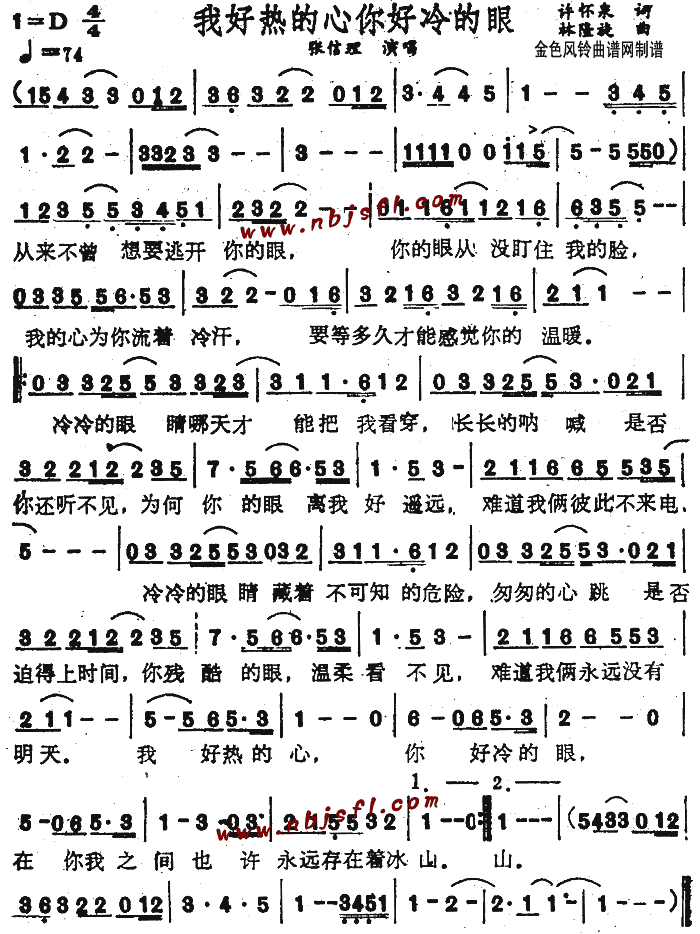 1=D 4/4 我好热的心你好冷的眼 许怀泉 词
♩=74 张信理 演唱 林隆旋 曲
金色风铃曲谱网制谱
(15433012 | 36322012 | 3·445 | 1--345
1·22- | 33233-- | 3--- | 111100i15 | 5-5550)
123553451 | 2322-- | 0116112116 | 66355--
www.nbjsfl.com
从来不曾 想要逃开 你的眼， 你的眼从 没盯住 我的脸，
0333556·53 | 322-016 | 32163216 | 211--
我的心为你流着 冷汗， 要等多久才能感觉你的 温暖。
0332553323 | 311·612 | 0332553·021
冷冷的眼 睛哪天才 能把 我看穿， 长长的呐 喊 是否
322112235 | 7·566·53 | 1·53- | 2116655535
你还听不见，为何 你 的眼 离我 好 遥远， 难道我俩彼此不来电．
5--- | 0332553032 | 311·612 | 0332553·021
冷冷的眼 睛 藏着 不可知 的危险， 匆匆的心 跳 是否
322112235 | 7·566·53 | 1·53- | 211665553
迫得上时间，你残 酷 的眼，温柔看 不见， 难道我俩永远没有
211-- | 5-565·3 | 1--0 | 6-065·3 | 2--0
明天。 我 好热的 心， 你 好冷的 眼，
1. 2.
5-065·3 | 1-3-03 | 2255532 | 1--0 | 1-- | (5433012
www.nbjsfl.com
在 你我 之 间 也 许 永远存在着冰 山。 山。
36322012 | 3·4·5 | 1--3451 | 1-2- | 2·11·1 | 1---)